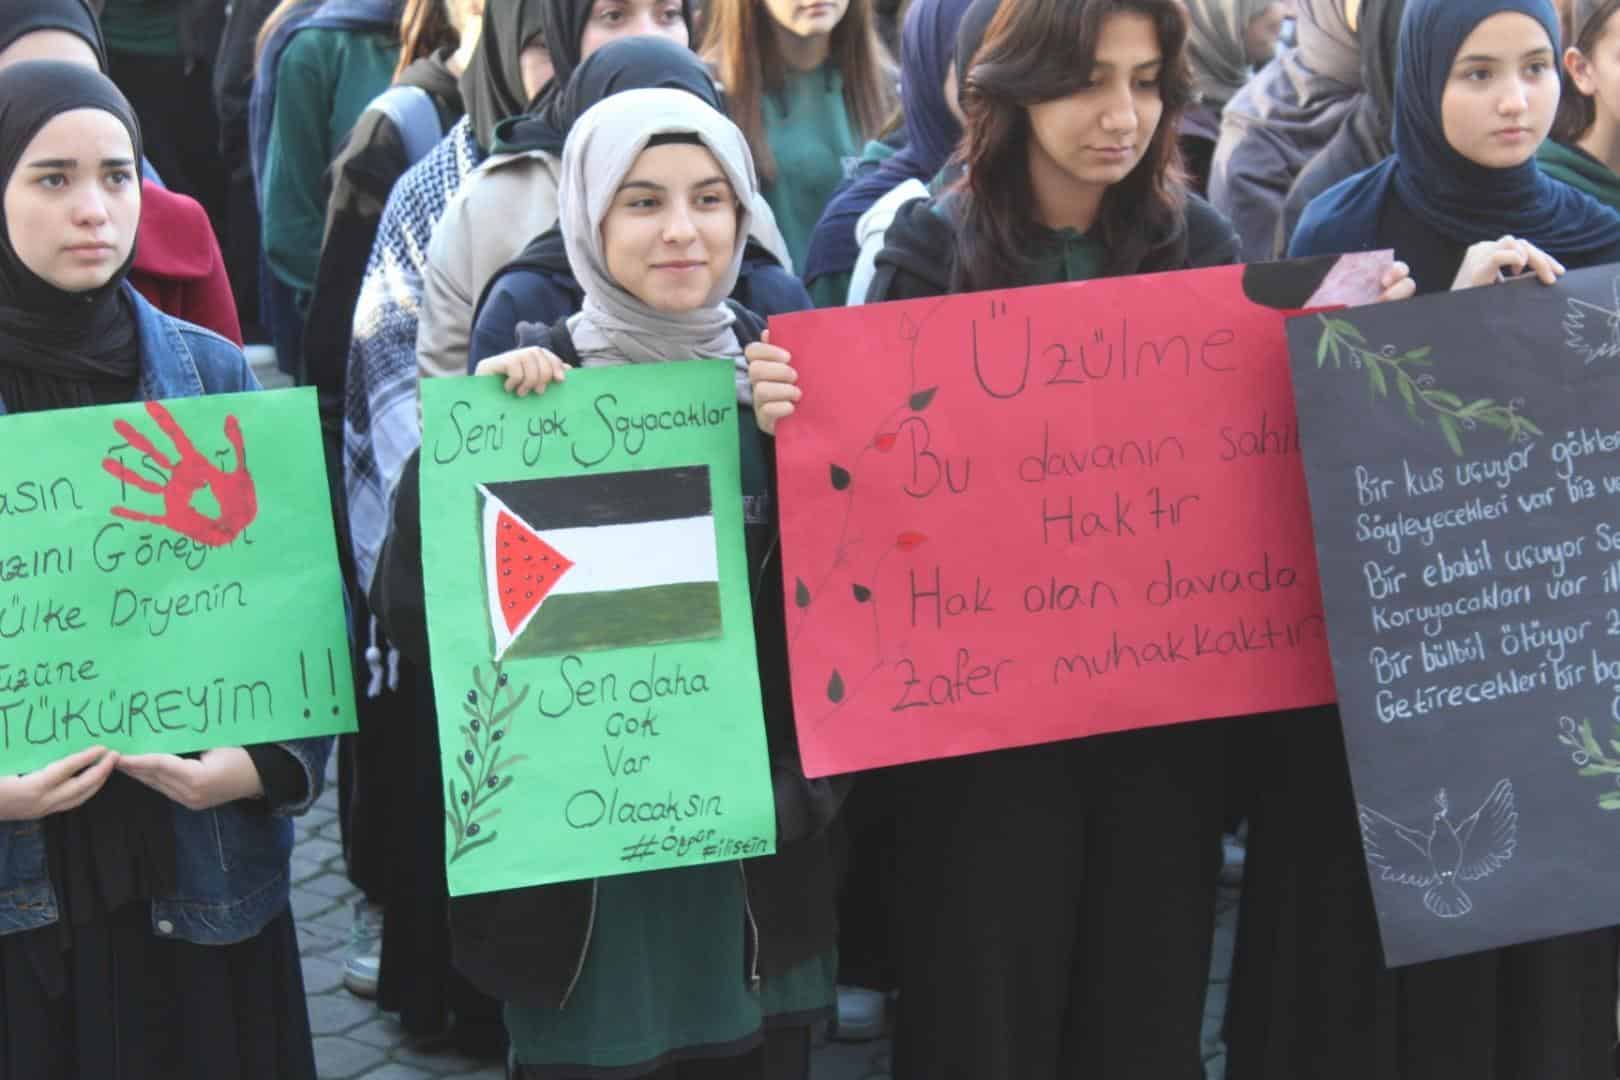 Ülke Diyenin
TÜKÜREYİM !!
Seni yok Sayacaklar
Sen daha
Çok
Var
Olacaksın
#özgür
filistin
Üzülme
Bu davanın
Haktır
Hak olan davada
Zafer muhakkaktır
Bir kuş uçuyor
Söyleyecekleri var biz
Bir ebabil uçuyor
Koruyacakları var
Bir bülbül ötüyor
Getirecekleri bir